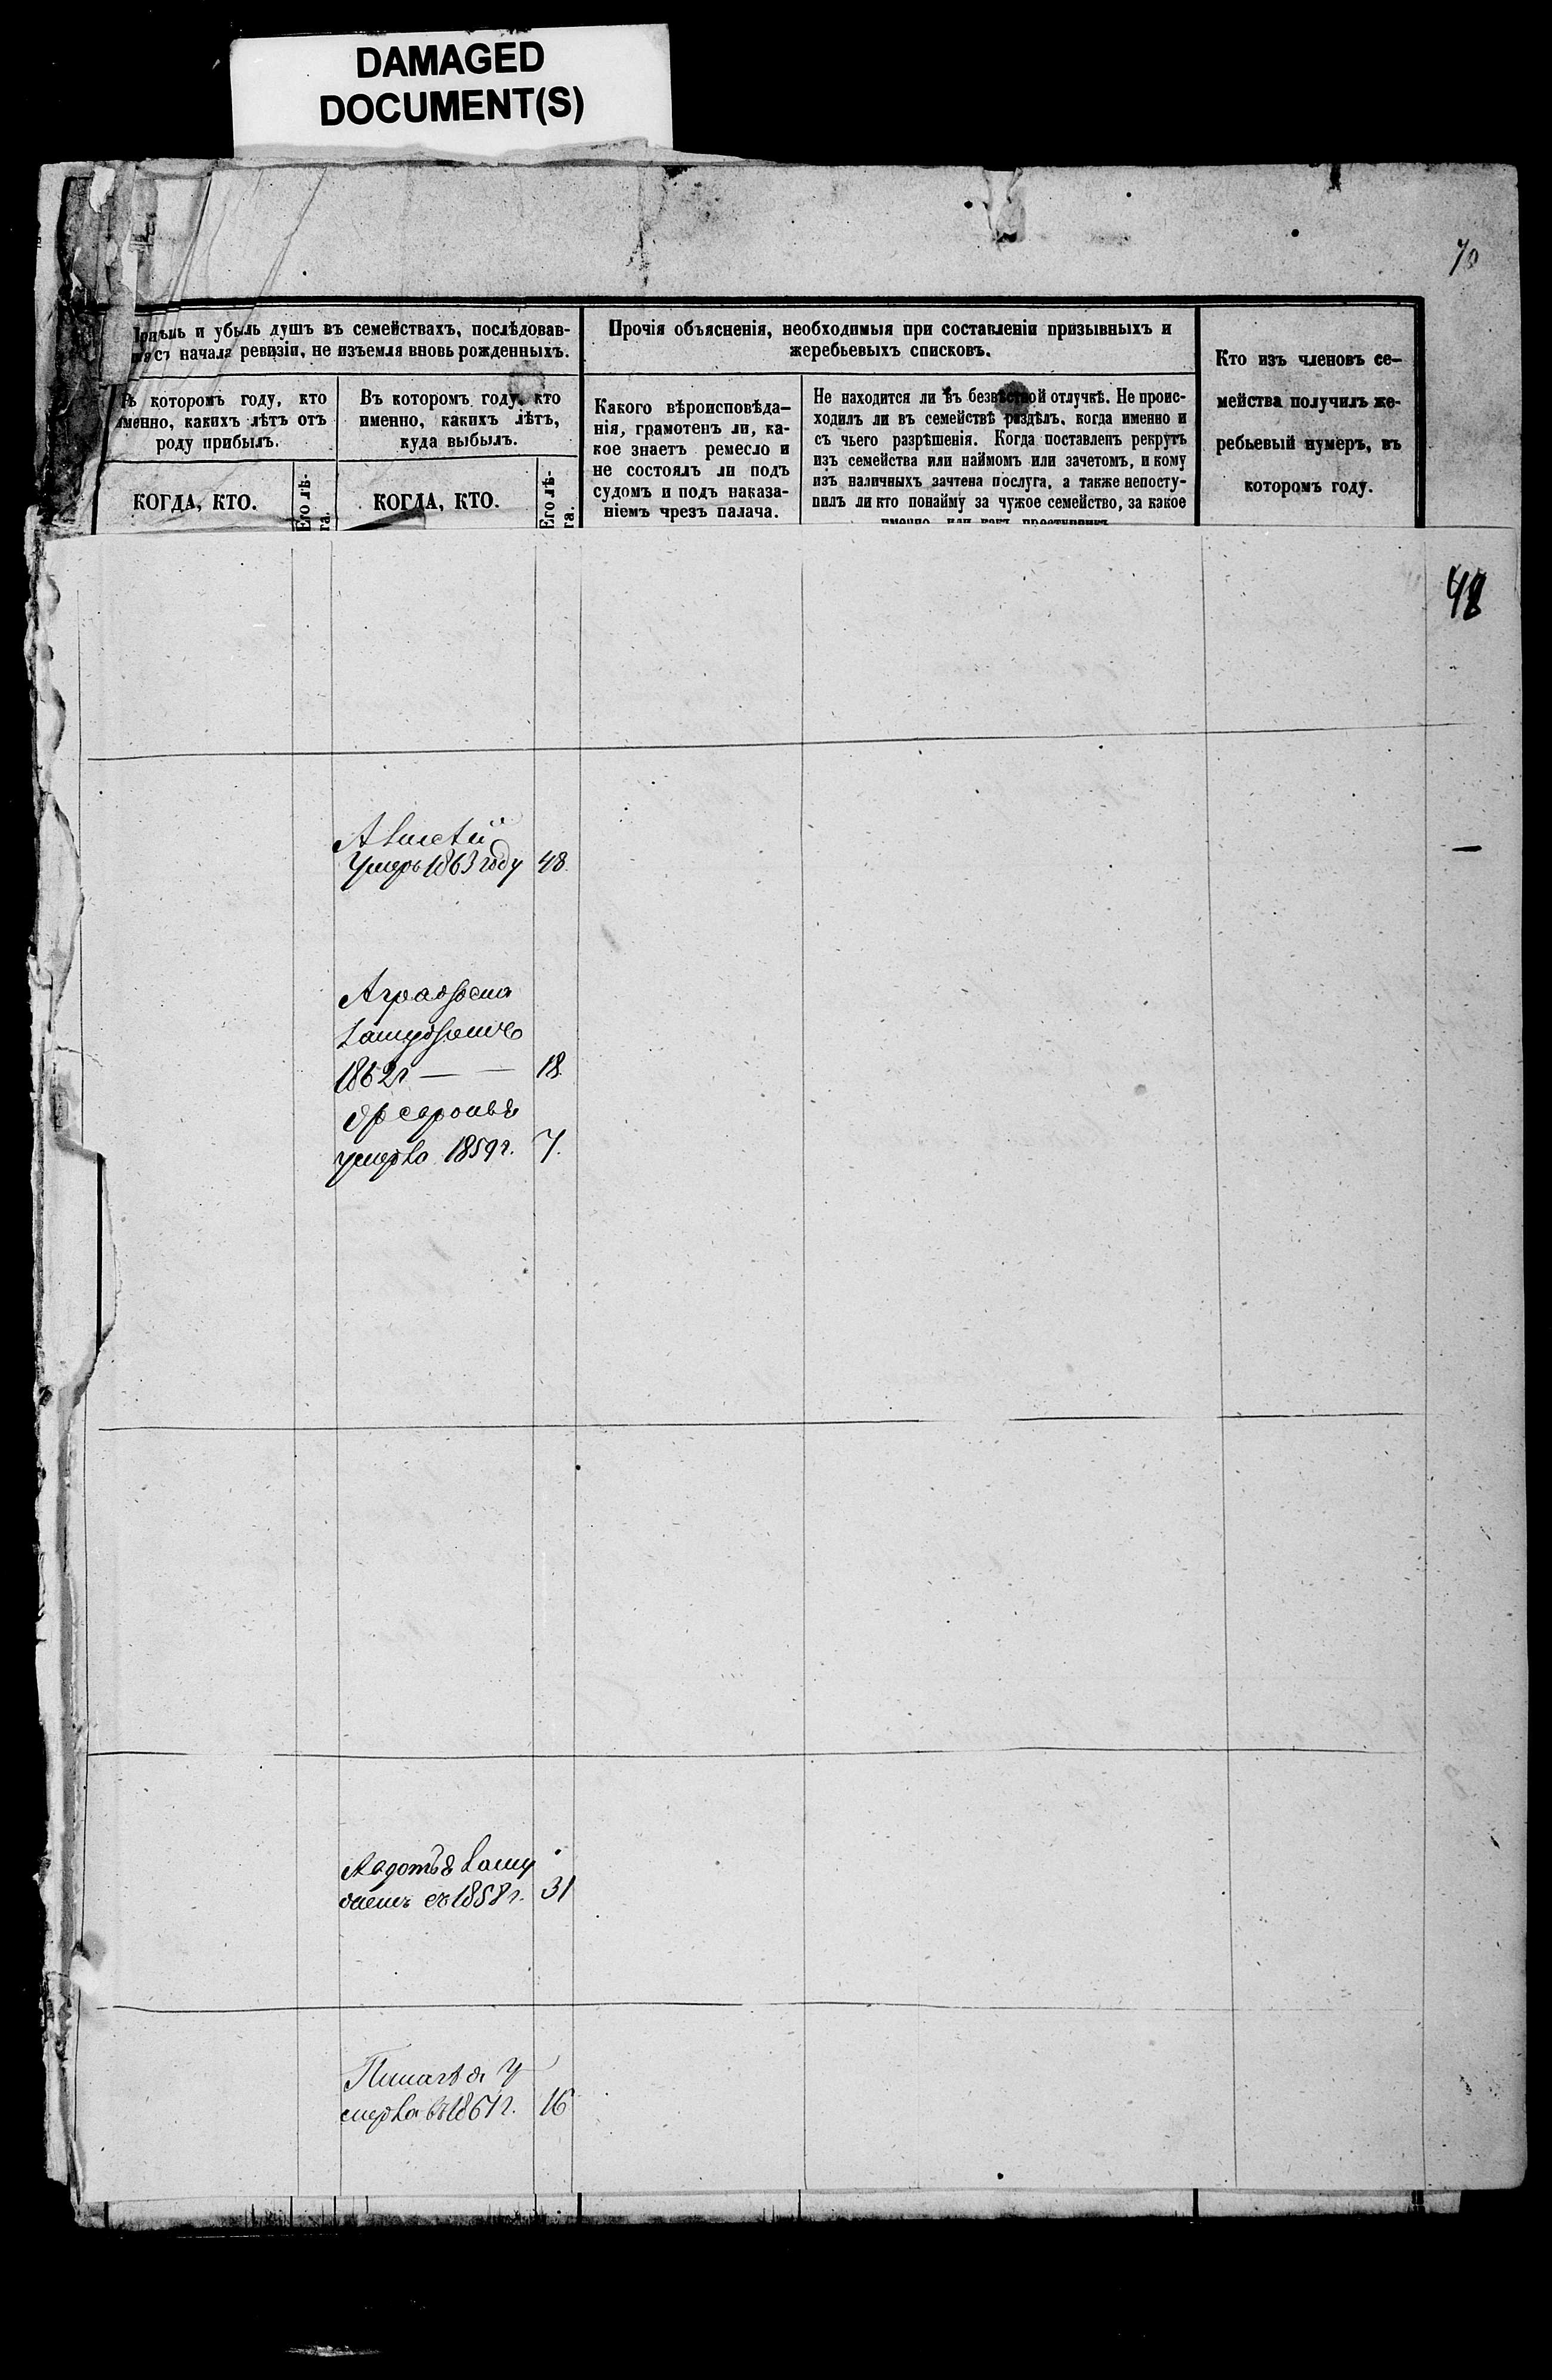 DAMAGED
DOCUMENT(S)
70
и убыль душъ въ семействахъ, послѣдовав-
начала ревизіи, не изъемля вновь рожденныхъ.
Прочія объясненія, необходимыя при составленіи призывныхъ и
жеребьевыхъ списковъ.
Кто изъ членовъ се-
мейства получилъ же-
ребьевый нумеръ, въ
которомъ году.
которомъ году, кто
именно, какихъ лѣтъ отъ
роду прибылъ.
Въ которомъ году, кто
именно, какихъ лѣтъ,
куда выбылъ.
Какого вѣроисповѣда-
нія, грамотенъ ли, ка-
кое знаетъ ремесло и
не состоялъ ли подъ
судомъ и подъ наказа-
ніемъ чрезъ палача.
Не находится ли въ безвѣстной отлучкѣ. Не проис-
ходилъ ли въ семействѣ раздѣлъ, когда именно и
съ чьего разрѣшенія. Когда поставленъ рекрутъ
изъ семейства или наймомъ или зачетомъ, и кому
изъ наличныхъ зачтена послуга, а также непосту-
пилъ ли кто понайму за чужое семейство, за какое
именно, или какъ преступникъ
КОГДА, КТО.
Его лѣ-
та.
КОГДА, КТО.
Его лѣ-
та.
48
Умеръ 1863 году 48.
Аграфена
Замужемъ
1862г — — 18
умерла 1859г. 7.
Заму
жемъ въ 1858г. 31
У
мерла въ 1861г. 16